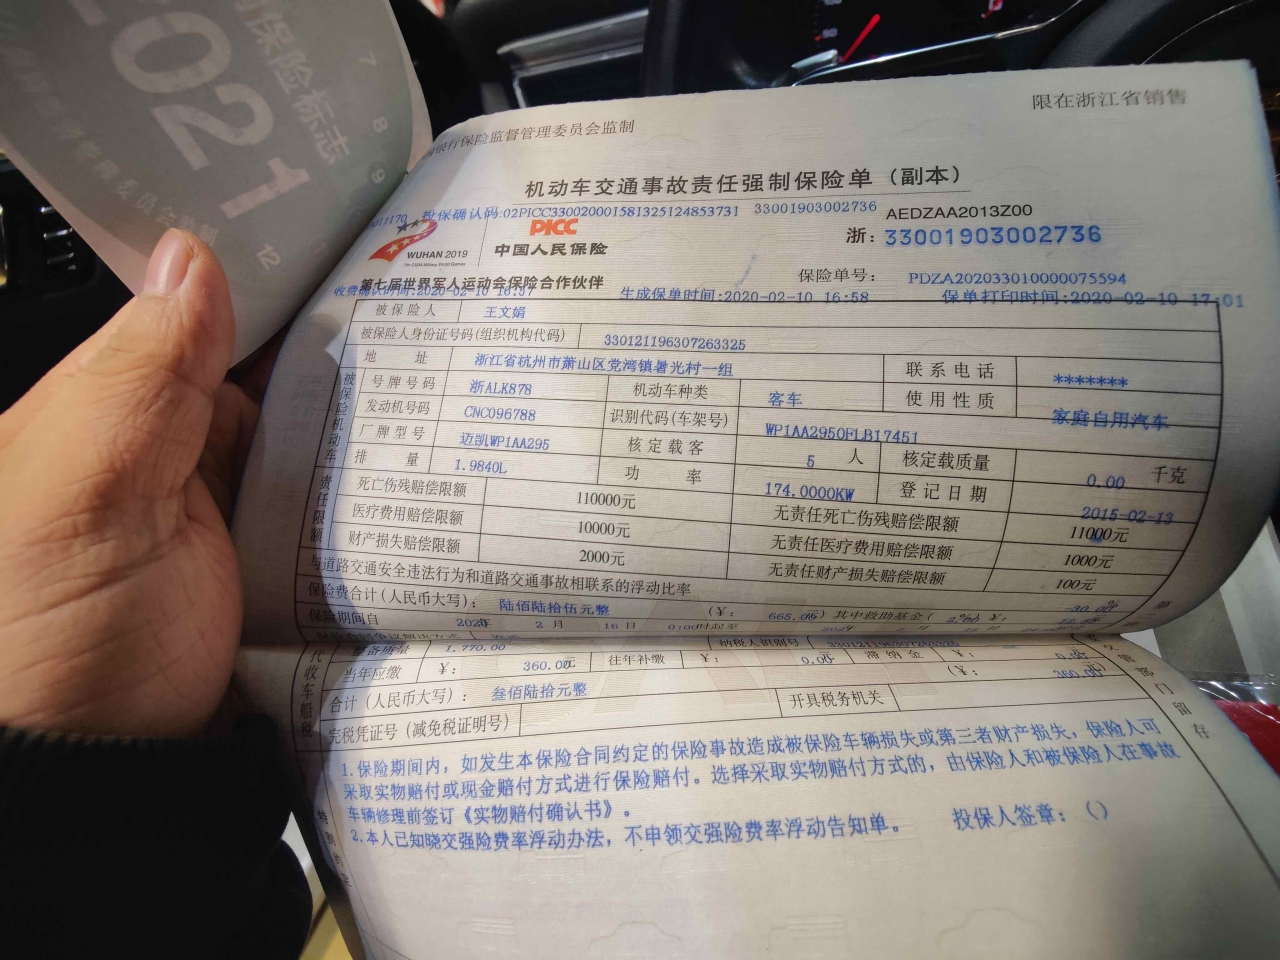 2021
保险标志
7
8
9
12
银行保险监督管理委员会监制
限在浙江省销售
机动车交通事故责任强制保险单（副本）
投保确认码:02PICC330020001581325124853731 33001903002736
AEDZAA2013Z00
WUHAN 2019
PICC
中国人民保险
浙: 33001903002736
第七届世界军人运动会保险合作伙伴
保险单号: PDZA202033010000075594
收费确认时间:2020-02-10 16:37 生成保单时间:2020-02-10 16:58 保单打印时间:2020-02-10 17:01
被保险人 王文娟
被保险人身份证号码(组织机构代码) 330121196307263325
地址 浙江省杭州市萧山区党湾镇曙光村一组 联系电话 *******
被保险机动车
号牌号码 浙ALK878 机动车种类 客车 使用性质 家庭自用汽车
发动机号码 CNC096788 识别代码(车架号) WP1AA2950FLB17451
厂牌型号 迈凯WP1AA295 核定载客 5 人 核定载质量 0.00 千克
排量 1.9840L 功率 174.0000KW 登记日期 2015-02-13
责任限额
死亡伤残赔偿限额 110000元 无责任死亡伤残赔偿限额 11000元
医疗费用赔偿限额 10000元 无责任医疗费用赔偿限额 1000元
财产损失赔偿限额 2000元 无责任财产损失赔偿限额 100元
与道路交通安全违法行为和道路交通事故相联系的浮动比率 -30.00 %
保险费合计(人民币大写): 陆佰陆拾伍元整 (¥: 665.00) 其中救助基金( 2 %) ¥:
保险期间自 2020年 2 月 16 日 0:00时起至
代收车船税
整备质量 1,770.00 纳税人识别号 330121196307263325
当年应缴 ¥: 360.00元 往年补缴 ¥: 0.00 滞纳金 ¥:
合计(人民币大写): 叁佰陆拾元整 (¥: 360.00
完税凭证号(减免税证明号) 开具税务机关
部门留存
1.保险期间内，如发生本保险合同约定的保险事故造成被保险车辆损失或第三者财产损失，保险人可
采取实物赔付或现金赔付方式进行保险赔付。选择采取实物赔付方式的，由保险人和被保险人在事故
车辆修理前签订《实物赔付确认书》。
2.本人已知晓交强险费率浮动办法，不申领交强险费率浮动告知单。 投保人签章：（）